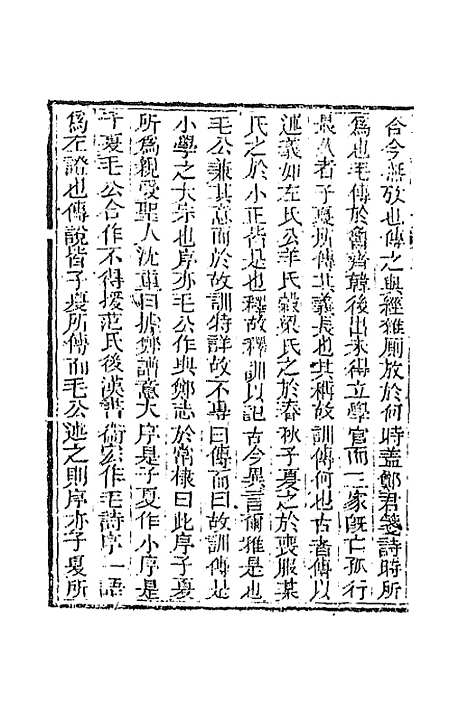 合今無攷也傳之與經雜厠放於何時蓋鄭君箋詩時所
爲也毛傳於魯齊韓後出未得立學官而三家旣亡孤行
最久者子夏所傳其義長也其稱故訓傳何也古者傳以
述義如左氏公羊氏穀梁氏之於春秋子夏之於喪服某
氏之於小正皆是也釋故釋訓以記古今異言爾雅是也
毛公兼其意而於故訓特詳故不專曰傳而曰故訓傳是
小學之大宗也序亦毛公作與鄭志於常棣曰此序子夏
所爲親受聖人沈重曰據鄭譜意大序是子夏作小序是
子夏毛公合作不得援范氏後漢書衞宏作毛詩序一語
爲左證也傳說皆子夏所傳而毛公述之則序亦子夏所